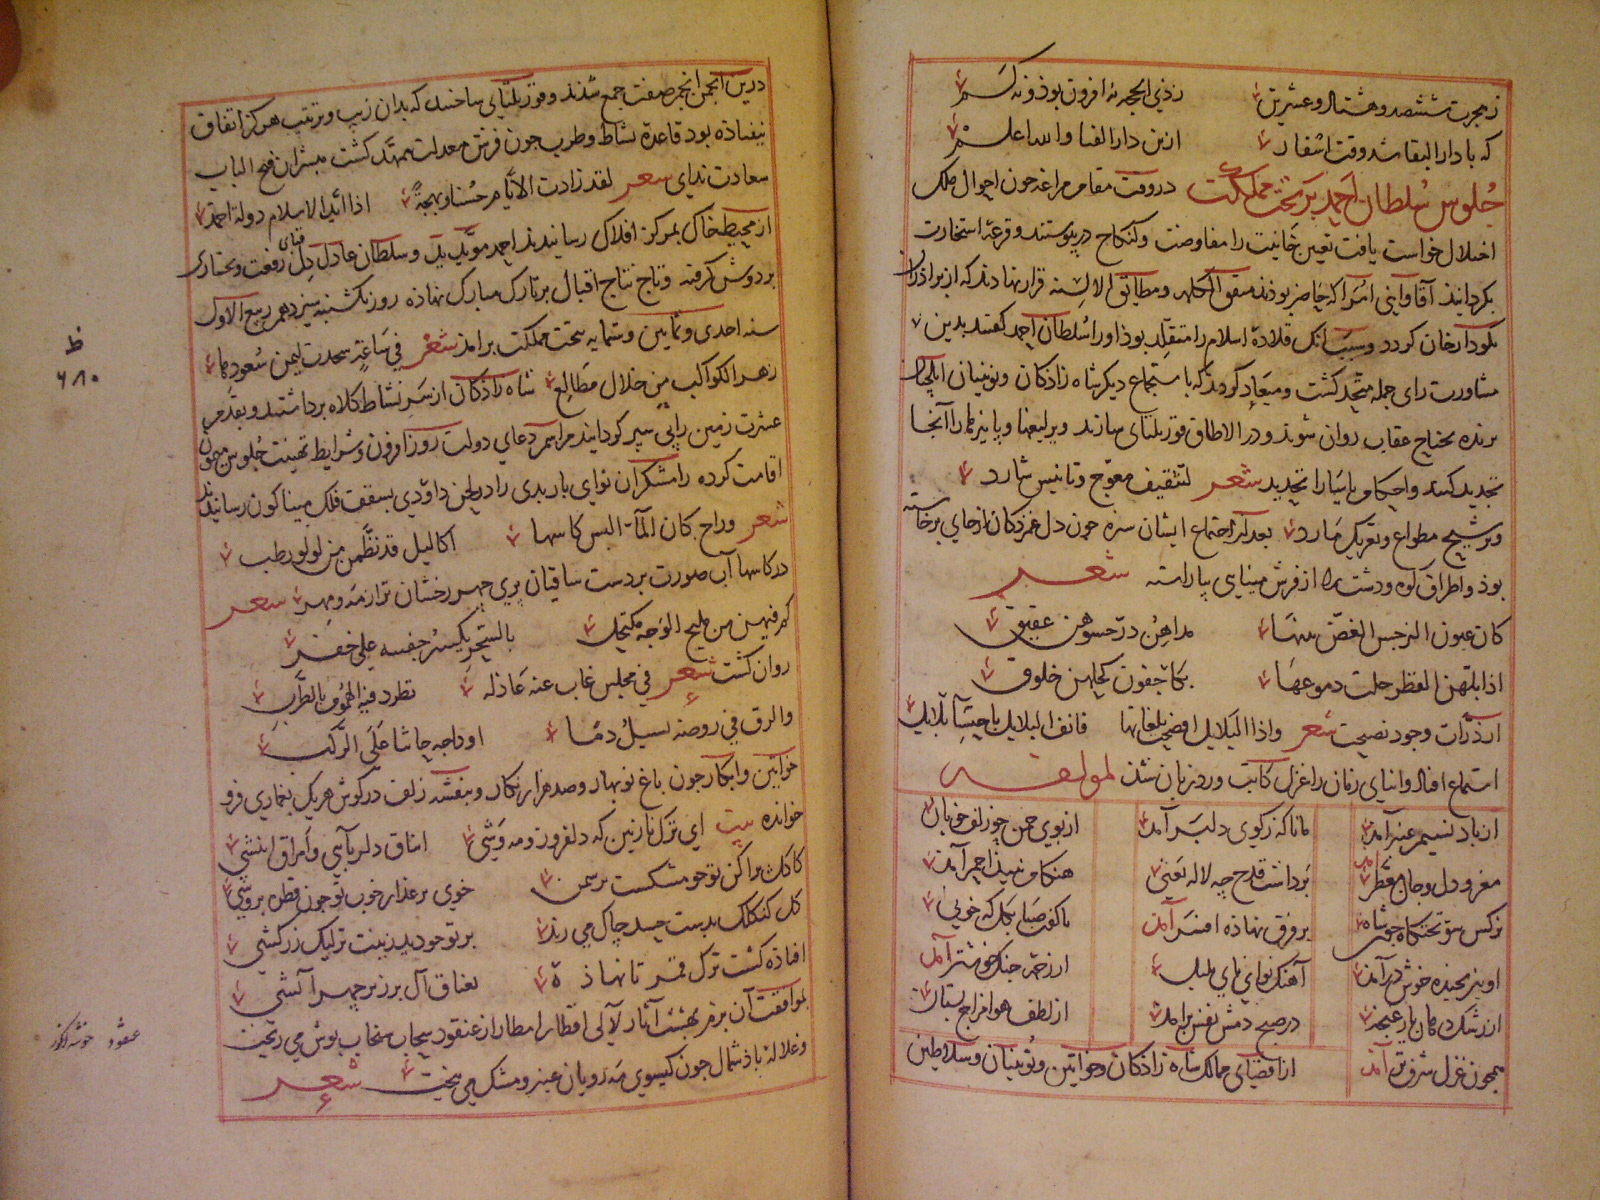 ز هجرت ششصد و هشتاد و عشرین ز ذی الحجه نه افزون بوذ و نه کم
که با دار البقا شد وقت اسفار ازین دار الفنا والله اعلم
جلوس سلطان احمد بر تخت مملکت در وقت مقام مراغه چون احوال ملک
اختلال خواست یافت تعیین خانیت را مفاوضت و کنکاج درپیوستند و قرعه استخارت
بگردانیذند آقا و اینی امرا که حاضر بوذند متفق الکلمه و مطابق الالسنه قرار نهادند که از براذران
تکودار خان گردد و سبب آنک قلادهٔ اسلام را متقلد بوذ او را سلطان احمد گفتند بدین
مشاورت رای جمله متحد گشت و میعاد کردند که با ستجماع دیگر شاه زاذکان و نوینیان ایلچیان
برنده بجناح عقاب روان شوند و در الاطاق قوریلتای سازند و یرلیغها و پایزه‌ها را آنجا
تجدید کنند و احکام یاسا را تجدید شعر لتثقیف معوج و تانیس شارد
وترشیح مطواع وتعریک مارد بعد از اجتماع ایشان سبزه چون دل غمزدکان از جای برخاسته
بوذ و اطراف کوه و دشت را از فرش مینای پیاراسته شعر
کان عیون النرجس الغض بینها مداهن در حشوهن عقیق
اذا بلهن القطر خلت دموعها بکاء جفون کحلهن خلوق
از ذرات وجود نصیحت شعر واذا البلابل افصحت بلغاتها فانف البلابل باحتساء بلابل
استماع افتاد و ابنای زمان را غزل کاتب ورد زبان شذ لمولفه
از باد نسیم عنبر آمد مانا که ز کوی دلبر آمد از بوی چمن چو زلف خوبان
مغز و دل و جان معطر آمد برداشت قدح چه لاله یعنی هنکام نبیذ احمر آمد
نرکس سوی تختکاه جون شاه بر فرق نهاده افسر آمد با کف صبا بکل که خوبی
او نیز بخنده خوش درآمد آهنک نوای نای بلبل از زخمه چنک خوشتر آمد
از رشک دهان یار غنچه در صبح دمش نفس برآمد از لطف هوا مزاج بستان
همچون غزل شرف تر آمد از اقصای ممالک شاه زاذکان و خواتین و نوینیان و سلاطین
درین انجمن انجم صفت جمع شذند و قوریلتای ساختند که بدان زیب و ترتیب هرکز اتفاق
نیفتاذه بود قاعدهٔ نشاط و طرب چون فرش معدلت ممهد کشت مبشران فتح الباب
سعادت ندای شعر لقد زادت الایام حسنا وبهجة اذا ائید الاسلام دولة احمد
از محیط خاک بمرکز افلاک رسانیدند احمد موید ید و سلطان عادل دل قبای رفعت و بختیاری
بر دوش کرفته و تاج نتاج اقبال بر تارک مبارک نهاذه روز یکشنبه سیزدهم ربیع الاول
سنه احدی و ثمانین و ستمایه بتخت مملکت برامذ شعر فی ساعة سجدت لیمن سعودها
زهر الکواکب من خلال مطالع شاه زاذکان از سر نشاط کلاه برداشتند و بقدم
عشرت زمین را پی سپر کردانیدند مراسم دعای دولت روز افزون و شرایط تهنیت جلوس همیون
اقامت کرده رامشکران نوای باربدی را در لحن داودی بسقف فلک مینا کون رسانیدند
شعر وراح کان المآء البس کاسها اکالیل قد نظمن من لولو رطب
در کاسها آب صورت بر دست ساقیان پری چهر رخشان تر از مه و مهر شعر
کم فیهن من ملیح الوجه مکتحل بالسحر یکسر جفنیه علی خفر
روان کشت شعر فی مجلس غاب عنه عاذله تطرد فیه الهموم بالطرب
والزق فی روضة تسیل دما اوداجه جاشا علی الرکب
خواتین و ابکار چون باغ نوبهار و صد هزار نکار و بنفشه زلف در کوش هریک بغمازی فرو
خوانده بیت ای ترک نازنین که دلفروز و مه وشی ایناق دلربایی و آمراق اینشی
کاکل پراکن تو چو مشکست بر سمن خوی بر عذار خوب تو چون قطره بروشی
کل کنکلک بدست حسد چاک می زند بر تو چو دید زینت ترلیک زرکشی
افتاذه کشت ترک قمر تا نهاذه بغتاق آل بر زبر چهر آتشی
بموافقت آن بزم بهشت آثار لآلی اقطار امطار از عنقود سحاب سنجاب پوش می ریخت
و غلاله باذ شمال جون کیسوی مه رویان عنبر و مشک می بیخت شعر
ظ
۶۸۰
عنقود خوشه انکور